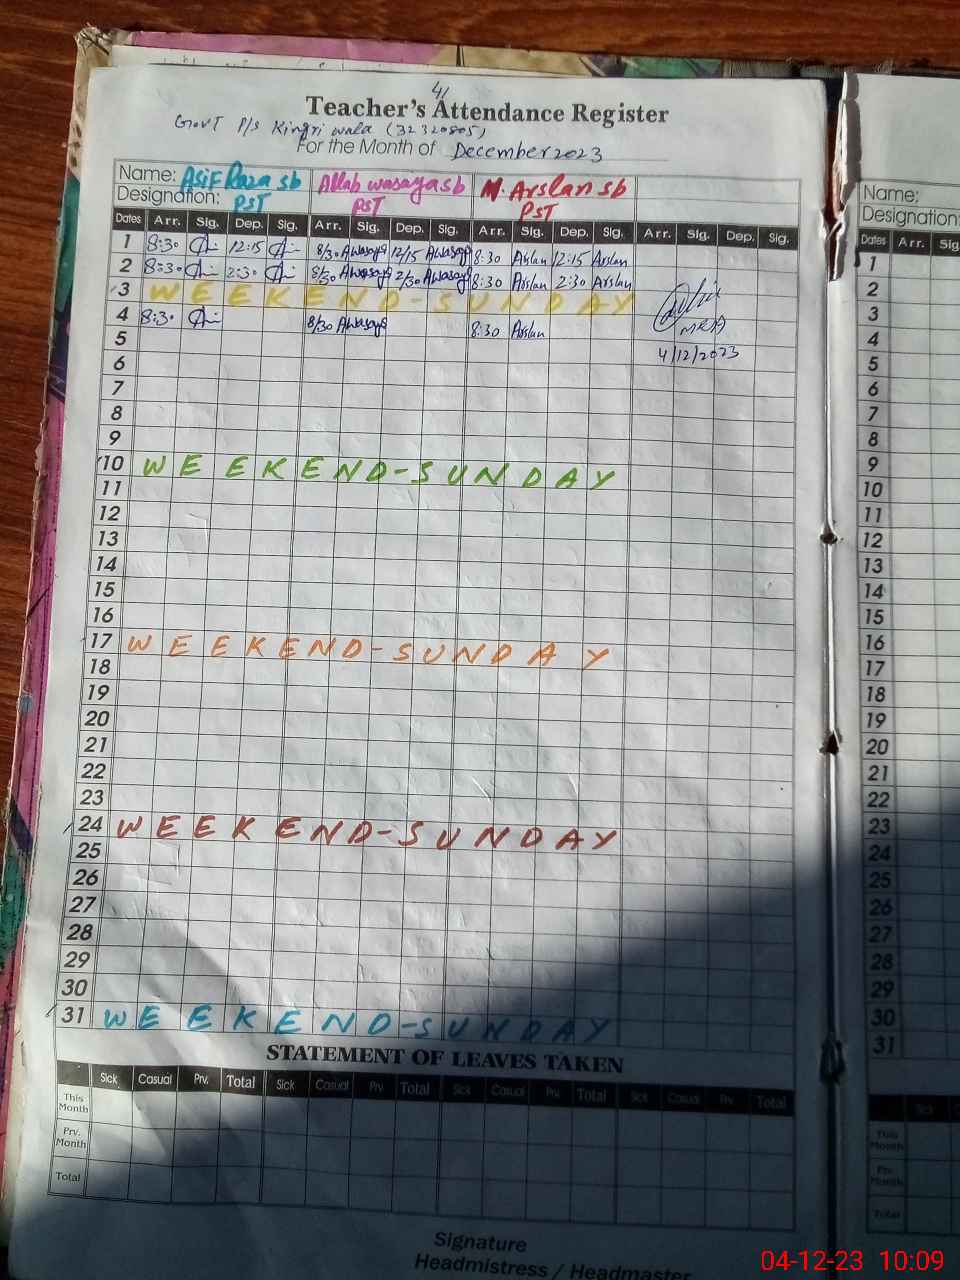 41
Teacher's Attendance Register
Govt P/s Kingri wala (32320805)
For the Month of December 2023
Name: Asif Raza sb Allah wasaya sb M. Arslan sb
Designation: PST PST PST
Dates Arr. Sig. Dep. Sig. Arr. Sig. Dep. Sig. Arr. Sig. Dep. Sig. Arr. Sig. Dep. Sig.
1 8:30 12:15 8/30 AWasaya 12/15 AWasaya 8:30 Arslan 12:15 Arslan
2 8:30 2:30 8/30 AWasaya 2/30 AWasaya 8:30 Arslan 2:30 Arslan
3 WEEKEND-SUNDAY
4 8:30 8/30 AWasaya 8:30 Arslan
MEA
5 4/12/2023
6
7
8
9
10 WEEKEND-SUNDAY
11
12
13
14
15
16
17 WEEKEND-SUNDAY
18
19
20
21
22
23
24 WEEKEND-SUNDAY
25
26
27
28
29
30
31 WEEKEND-SUNDAY
STATEMENT OF LEAVES TAKEN
Sick Casual Prv. Total Sick Casual Prv. Total Sick Casual Prv. Total Sick Casual Prv. Total
This Month
Prv. Month
Total
Signature
Headmistress / Headmaster
Name:
Designation:
Dates Arr. Sig.
1
2
3
4
5
6
7
8
9
10
11
12
13
14
15
16
17
18
19
20
21
22
23
24
25
26
27
28
29
30
31
Sick
This Month
Prv. Month
Total
04-12-23 10:09